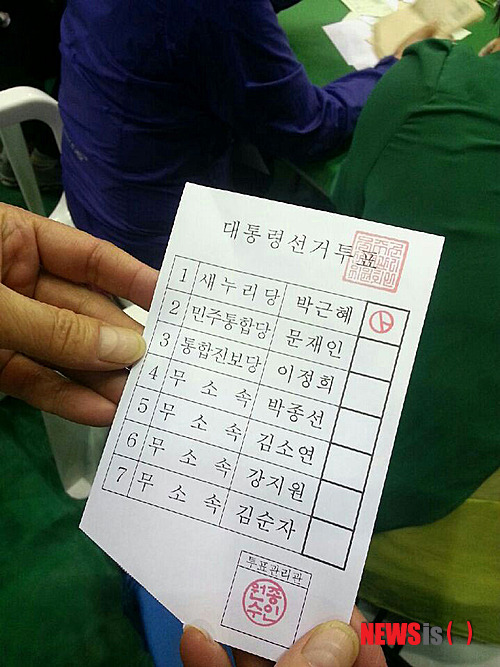 대통령선거투표
1 새누리당 박근혜
2 민주통합당 문재인
3 통합진보당 이정희
4 무 소 속 박종선
5 무 소 속 김소연
6 무 소 속 강지원
7 무 소 속 김순자
투표관리관
NEWSis( )